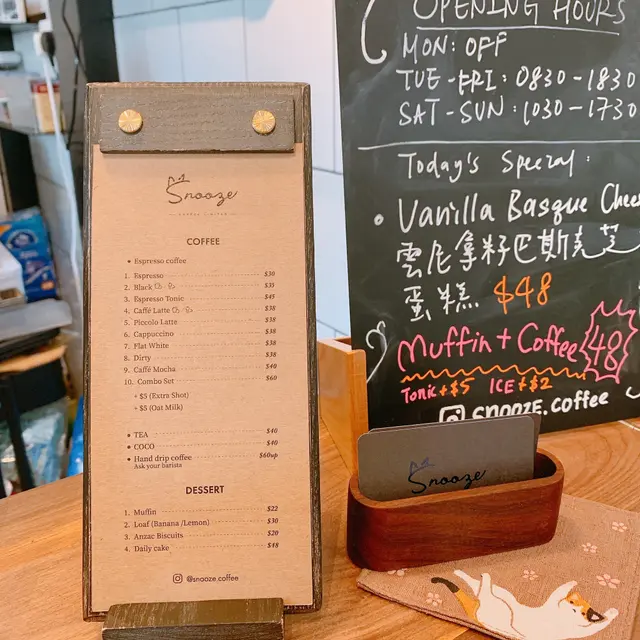 Snooze
COFFEE
• Espresso coffee
1. Espresso $30
2. Black $35
3. Espresso Tonic $45
4. Caffé Latte $38
5. Piccolo Latte $38
6. Cappuccino $38
7. Flat White $38
8. Dirty $38
9. Caffé Mocha $40
10. Combo Set $60
+ $5 (Extra Shot)
+ $5 (Oat Milk)
• TEA $40
• COCO $40
• Hand drip coffee $60up
Ask your barista
DESSERT
1. Muffin $22
2. Loaf (Banana /Lemon) $30
3. Anzac Biscuits $20
4. Daily cake $48
@snooze.coffee
OPENING HOURS
MON: OFF
TUE-FRI: 0830-1830
SAT-SUN: 1030-1730
Today's Special:
• Vanilla Basque Chee
雲尼拿籽巴斯克芝
蛋糕 $48
Muffin + Coffee 48
Tonic+$5 ICE+$2
snooze.coffee
Snooze